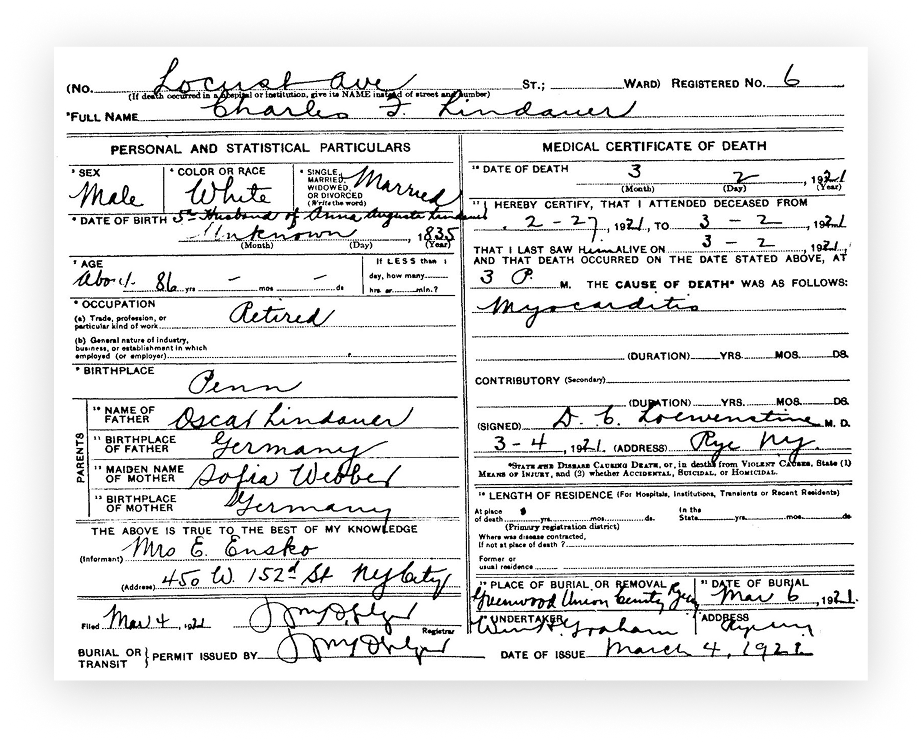 (No. Locust Ave ST.; WARD) REGISTERED No. 6
(If death occurred in a hospital or institution, give its NAME instead of street and number)
FULL NAME Charles F. Lindauer
PERSONAL AND STATISTICAL PARTICULARS
SEX Male
COLOR OR RACE White
SINGLE, MARRIED, WIDOWED OR DIVORCED (Write the word) Married
DATE OF BIRTH Husband of Anna Augusta Lindauer
Unknown, 1835
(Month) (Day) (Year)
AGE
About 86 yrs – mos – ds
If LESS than 1
day, how many
hrs or min.?
OCCUPATION
(a) Trade, profession, or
particular kind of work Retired
(b) General nature of industry,
business, or establishment in which
employed (or employer)
BIRTHPLACE
Penn
PARENTS
10 NAME OF
FATHER Oscar Lindauer
11 BIRTHPLACE
OF FATHER Germany
MAIDEN NAME
OF MOTHER Sofia Webber
BIRTHPLACE
OF MOTHER Germany
THE ABOVE IS TRUE TO THE BEST OF MY KNOWLEDGE
(Informant) Mrs E. Ensko
(Address) 450 W. 152d St NY City
Filed Mar 4, 1921
Registrar
MEDICAL CERTIFICATE OF DEATH
DATE OF DEATH 3 2, 1921
(Month) (Day) (Year)
I HEREBY CERTIFY, THAT I ATTENDED DECEASED FROM
2-27, 1921, TO 3-2 1921
THAT I LAST SAW Him ALIVE ON 3-2, 1921,
AND THAT DEATH OCCURRED ON THE DATE STATED ABOVE, AT
3 P. M. THE CAUSE OF DEATH* WAS AS FOLLOWS:
Myocarditis
(DURATION) YRS. MOS. DS.
CONTRIBUTORY (Secondary)
(DURATION) YRS. MOS. DS.
(SIGNED) D. C. Loewenstine M. D.
3-4, 1921 (ADDRESS) Rye NY.
*STATE THE DISEASE CAUSING DEATH, or, in deaths from VIOLENT CAUSES, State (1)
MEANS OF INJURY, and (2) whether ACCIDENTAL, SUICIDAL, or HOMICIDAL.
LENGTH OF RESIDENCE (For Hospitals, Institutions, Transients or Recent Residents)
At place
of death yrs. mos. ds. In the
State yrs. mos. ds.
(Primary registration district)
Where was disease contracted,
if not at place of death?
Former or
usual residence
PLACE OF BURIAL OR REMOVAL
Greenwood Union
DATE OF BURIAL
Mar 6, 1921.
UNDERTAKER
Wm H. Graham
ADDRESS
BURIAL OR TRANSIT } PERMIT ISSUED BY DATE OF ISSUE March 4, 1921